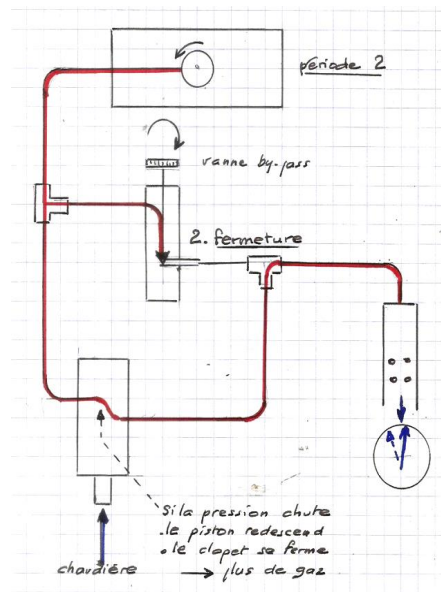 période 2
vanne by-pass
2. fermeture
Si la pression chute
. le piston redescend
. le clapet se ferme
→ plus de gaz
chaudière